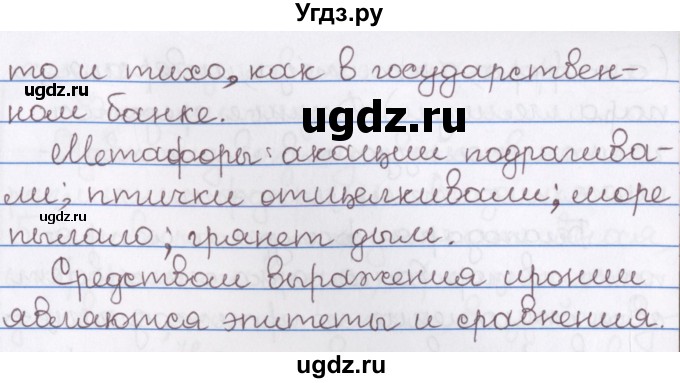 Угдз.ру
то и тихо, как в государствен-
ugdz.ru
ном банке.
ugdz.ru
ugdz.ru
Метафоры: акации подрагива-
ли; птички отщелкивали; море
ugdz.ru
пылало; грянет дым.
Средством выражения иронии
являются эпитеты и сравнения.
ugdz.ru
ugdz.ru